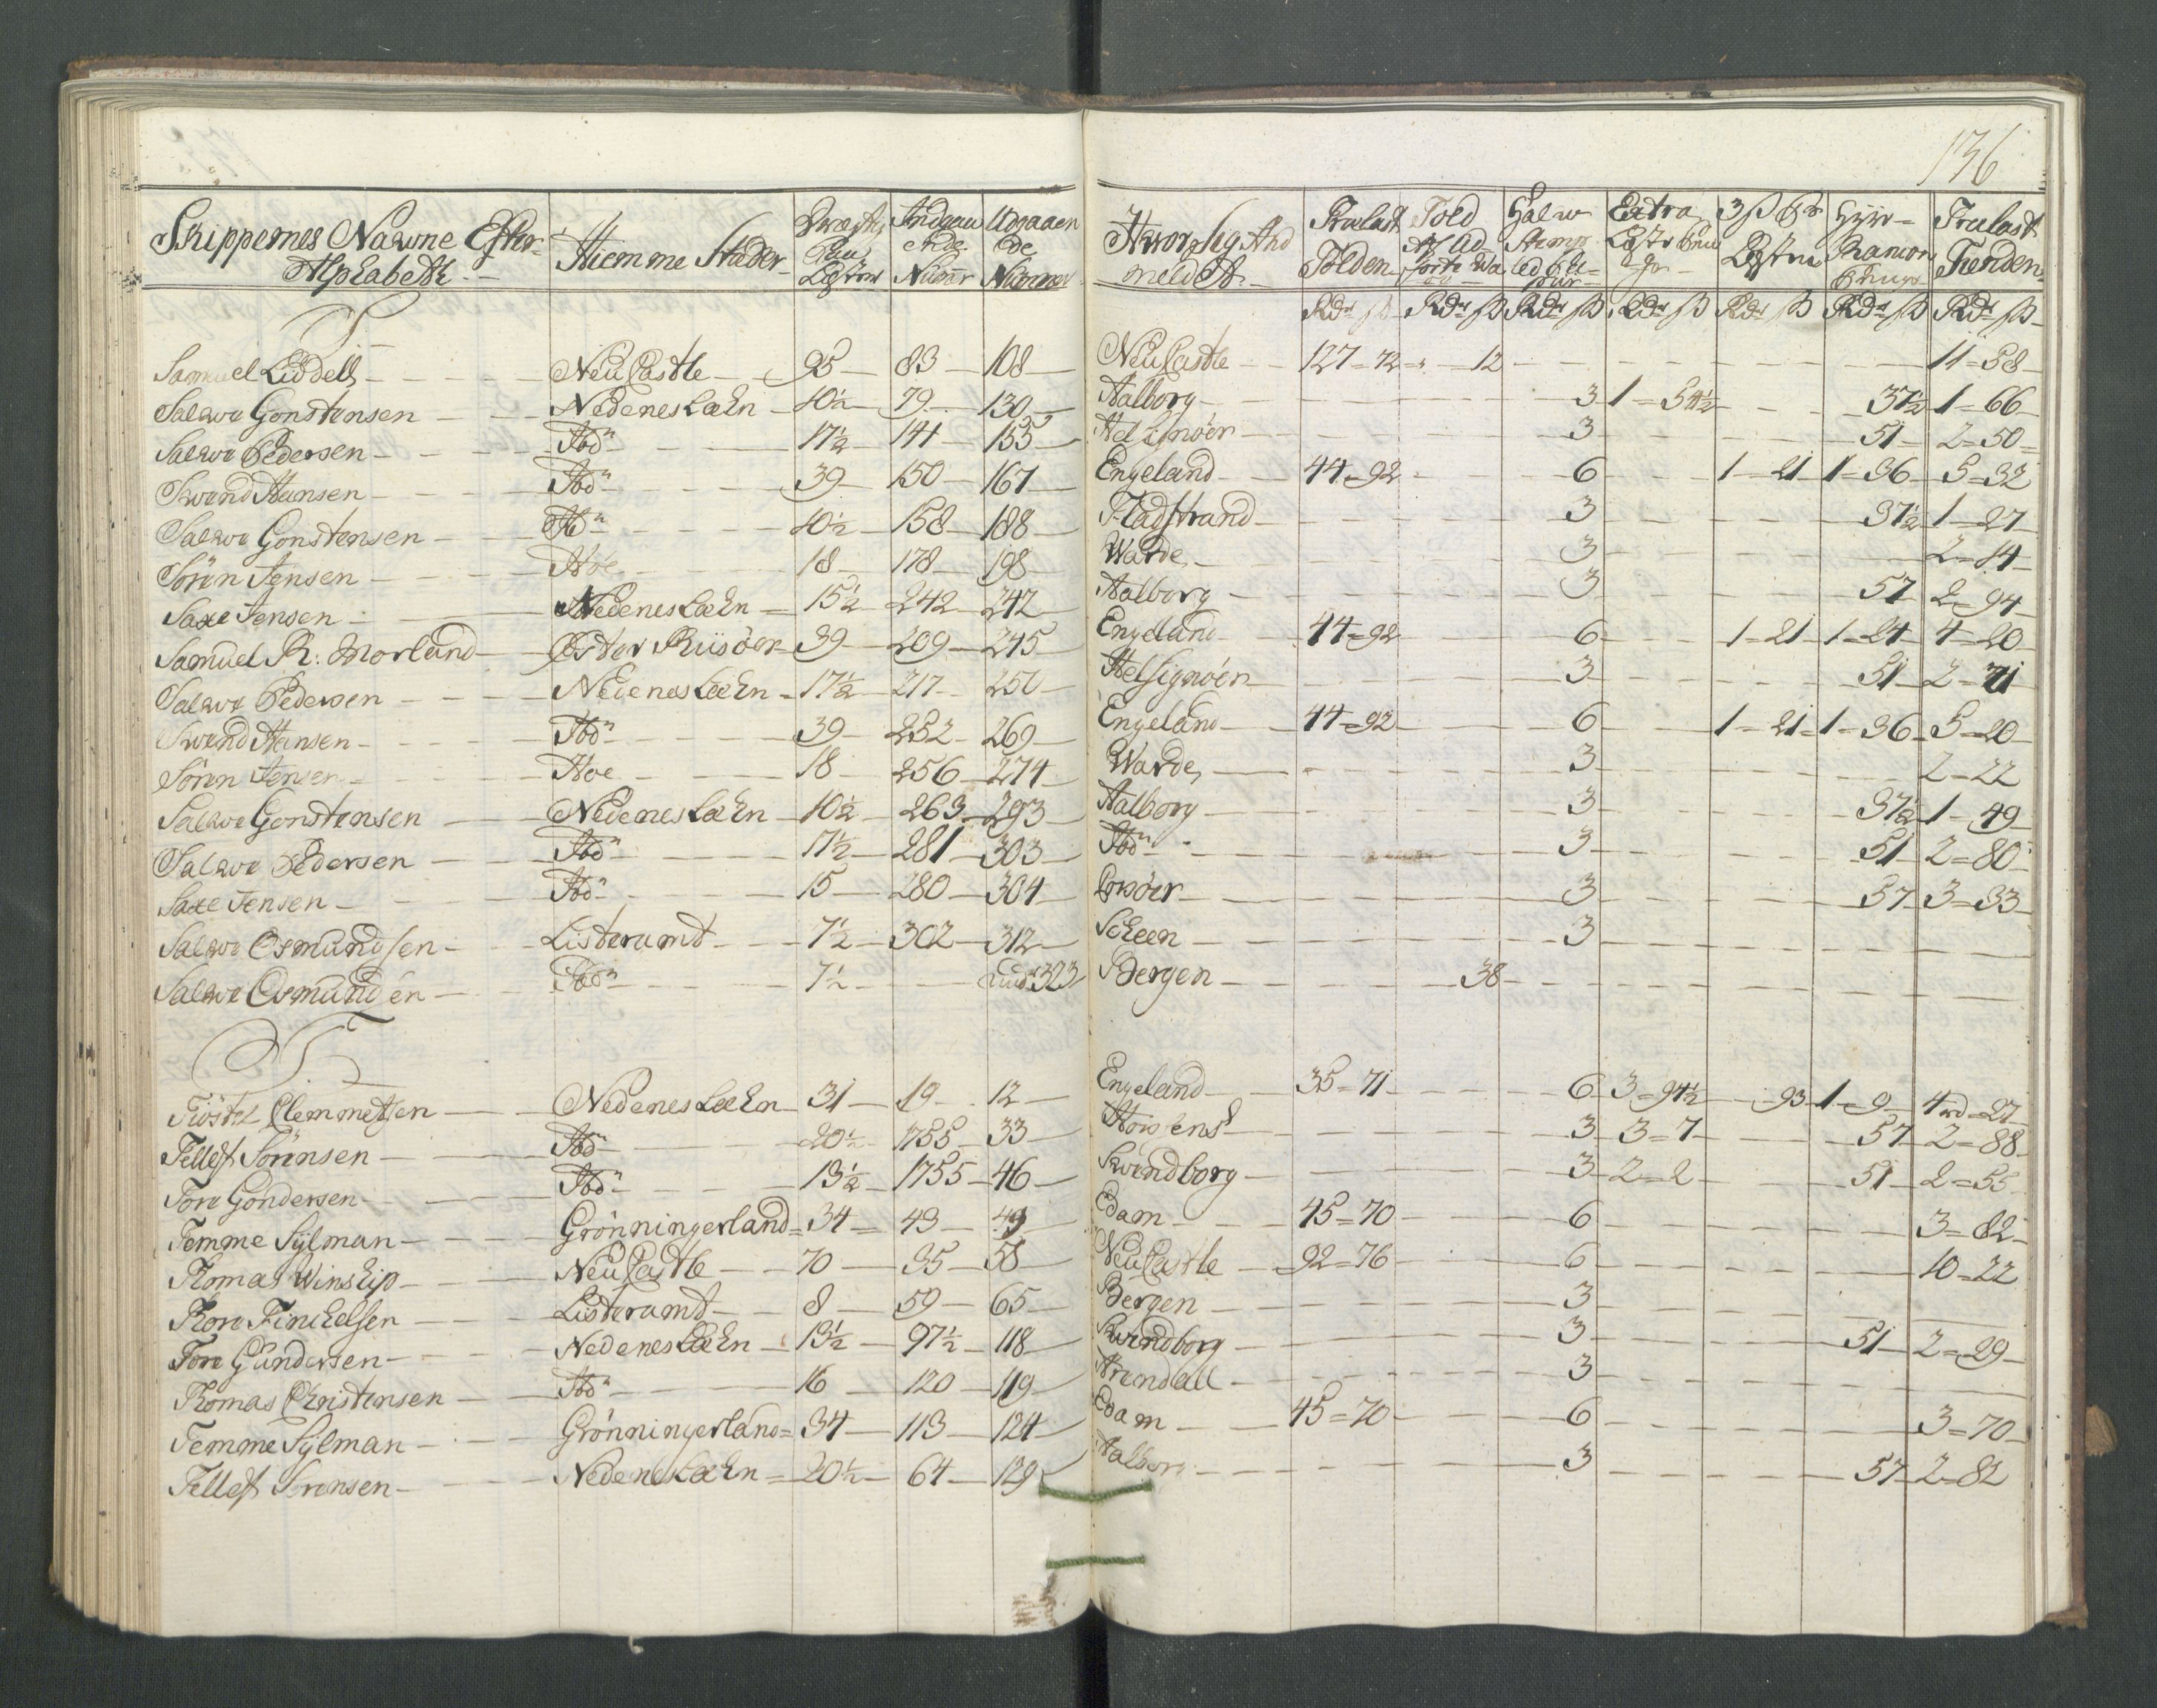 136
Skippernes Nawne Efter Alphabeth | Hiemme Stæder | Drægtig Læster | Indgaaende Numer | Udgaaende Nummer | Hworhen Sig Andmeldt | Trælast Tolden | Told Af Ud | Halw | Extra | 3 ß | | Trælast Tienden
Rdr ß | Rdr ß | Rdr ß | Rdr ß | Rdr ß | Rdr ß | Rdr ß
S
Samuel Liddell | NeuCastle | 95 | 83 | 108 | NeuCastle | 127=72 | 12 | 11=58
Salwe Gonstensen | NedenesLæhn | 10½ | 79 | 130 | Aalborg | 3 | 1=54½ | 37½ | 1=66
Salwe Pedersen | Ibdn | 17½ | 141 | 155 | Helsignöer | 3 | 51 | 2=50
Swend Hansen | Ibdn | 39 | 150 | 167 | Engeland | 44=92 | 6 | 1=21 | 1=36 | 5=32
Salwe Gonstensen | Ibdn | 10½ | 158 | 188 | Fladstrand | 3 | 37½ | 1=27
Sören Jensen | Hoe | 18 | 178 | 198 | Warde | 3 | 2=14
Saxe Jensen | NedenesLæhn | 15½ | 242 | 242 | Aalborg | 3 | 57 | 2=94
Samuel R: Morland | Öster Riisöer | 39 | 209 | 245 | Engeland | 44=92 | 6 | 1=21 | 1=24 | 4=20
Salwe Pedersen | NedenesLæhn | 17½ | 217 | 250 | Helsignöer | 3 | 51 | 2=71
Swend Hansen | Ibdn | 39 | 252 | 269 | Engeland | 44=92 | 6 | 1=21 | 1=36 | 5=20
Sören Jensen | Hoe | 18 | 256 | 274 | Warde | 3 | 2=22
Salwe Gonstensen | NedenesLæhn | 10½ | 263 | 293 | Aalborg | 3 | 37½ | 1=49
Salwe Pedersen | Ibdn | 17½ | 281 | 303 | Ibdn | 3 | 51 | 2=80
Saxe Jensen | Ibdn | 15 | 280 | 304 | 3 | 57 | 3=33
Salwe Osmundsen | Listeramt | 7½ | 302 | 312 | Scheen | 3
Salwe Osmundsen | Ibdn | 7½ | 323 | Bergen | 38
T
Clemmetsen | NedenesLæhn | 31 | 19 | 12 | Engeland | 35=71 | 6 | 3=94½ | 93 | 1=9 | 4=27
Tellef Sörensen | Ibdn | 20½ | 1755 | 33 | Horsens | 3 | 3=7 | 57 | 2=88
Tore Gondersen | Ibdn | 13½ | 1755 | 46 | Swendborg | 3 | 2=2 | 51 | 2=55
Temme Sÿlman | Grönningerland | 34 | 43 | 49 | Edam | 45=70 | 6 | 3=82
Thomas Winship | NeuCastle | 70 | 35 | 58 | NeuCastle | 92=76 | 6 | 10=22
Thore Finchelsen | Listeramt | 8 | 59 | 65 | Bergen | 3
Tore Gundersen | NedenesLæhn | 13½ | 97½ | 118 | Swendborg | 3 | 51 | 2=29
Thomas Christensen | Ibdn | 16 | 120 | 119 | Arendall | 3
Temme Sÿlman | Grönningerland | 34 | 113 | 124 | Edam | 45=70 | 6 | 3=70
Tellef Sörensen | NedenesLæhn | 20½ | 64 | 129 | Aalborg | 3 | 57 | 2=82